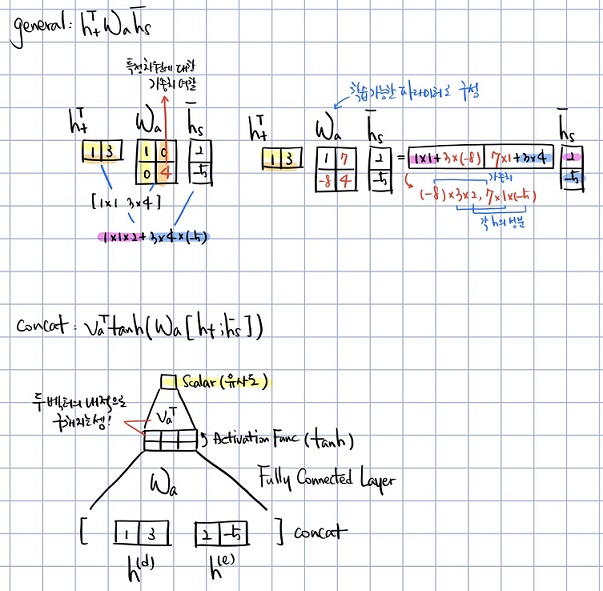 general: hₜᵀ Wₐ h̄ₛ
특정차원에 대한
가중치 역할
학습가능한 파라미터로 구성
hₜᵀ Wₐ h̄ₛ
1 3
1 0
0 4
2
-5
[1×1 3×4]
1×1×2+3×4×(-5)
hₜᵀ Wₐ h̄ₛ
1 3
1 7
-8 4
2
-5
= 1×1+3×(-8) 7×1+3×4
2
-5
가중치
(-8)×3×2, 7×1×(-5)
각 h의 성분
concat: vₐᵀtanh(Wₐ[hₜ;h̄ₛ])
Scalar(유사도)
두 벡터의 내적으로
구해지는셈!
vₐᵀ
Activation Func (tanh)
Wₐ
Fully Connected Layer
[ 1 3 2 -5 ] concat
h⁽ᵈ⁾ h⁽ᵉ⁾